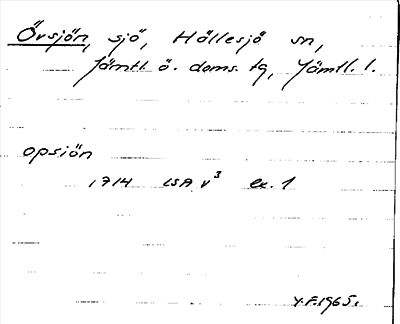 Övsjön, sjö, Hällesjö sn,
Jämtl. ö. doms. tg, Jämtl. l.
opsiön
1714 LSA V³ ex. 1
Y.F. 1965.